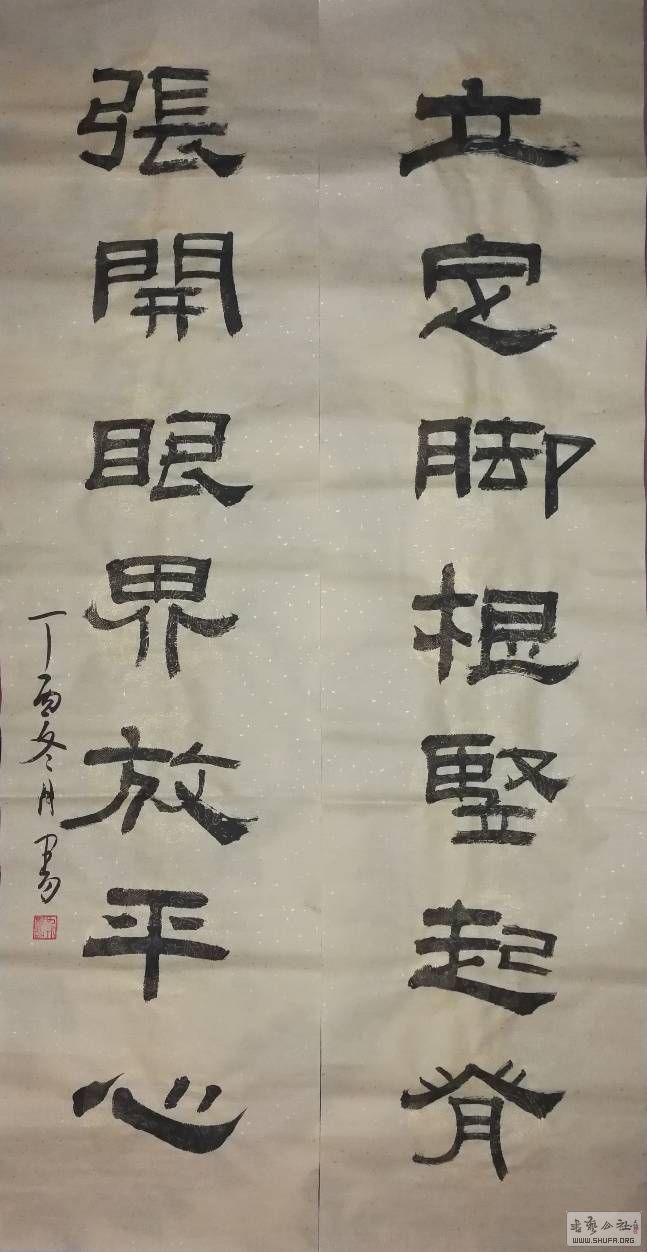 立定脚根竪起脊
張開眼界放平心
丁酉冬月
WWW.SHUFA.ORG